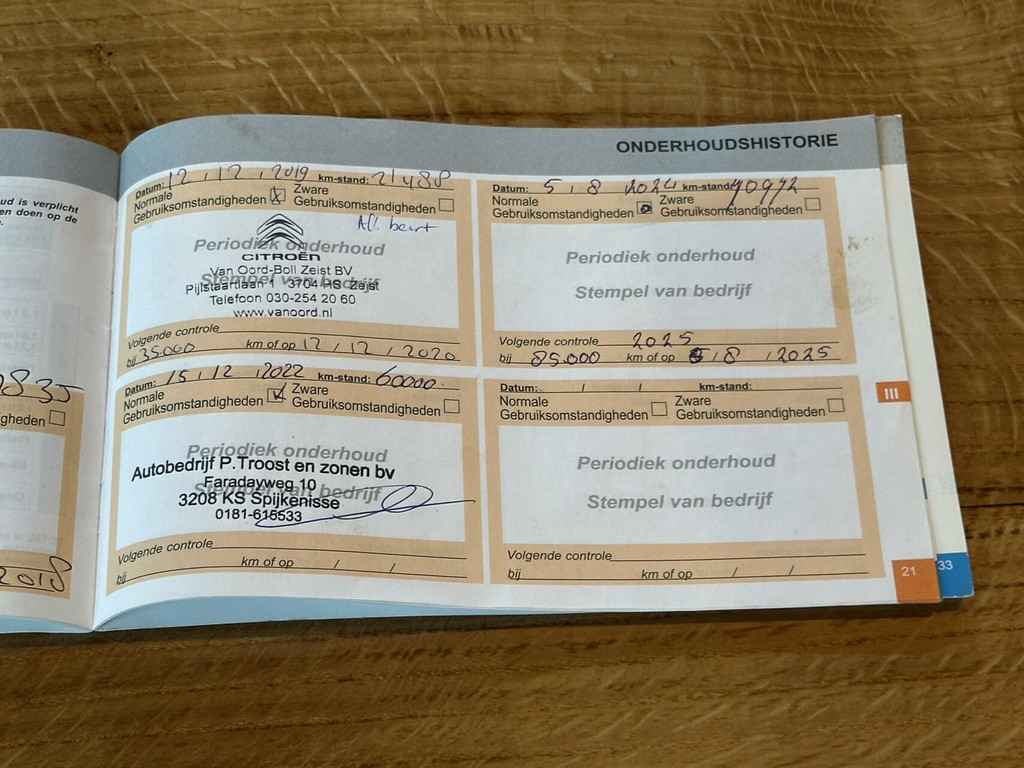 ud is verplicht
en doen op de
2835
igheden
2018
ONDERHOUDSHISTORIE
Datum: 12 / 12 / 2019 km-stand: 21488
Normale Gebruiksomstandigheden
Zware Gebruiksomstandigheden
beurt
Periodiek onderhoud
CITROËN
Stempel van bedrijf
Van Oord-Boll Zeist BV
Pijlstaartlaan 1 3704 HS Zeist
Telefoon 030-254 20 60
www.vanoord.nl
Volgende controle
bij 35.000 km of op 12 / 12 / 2020
Datum: 15 / 12 / 2022 km-stand: 60000
Normale Gebruiksomstandigheden
Zware Gebruiksomstandigheden
Periodiek onderhoud
Stempel van bedrijf
Autobedrijf P.Troost en zonen bv
Faradayweg 10
3208 KS Spijkenisse
0181-615533
Volgende controle
bij km of op / /
Datum: 5 / 8 / 2024 km-stand: 70972
Normale Gebruiksomstandigheden
Zware Gebruiksomstandigheden
Periodiek onderhoud
Stempel van bedrijf
Volgende controle 2025
bij 85.000 km of op 5 / 8 / 2025
Datum: / / km-stand:
Normale Gebruiksomstandigheden
Zware Gebruiksomstandigheden
Periodiek onderhoud
Stempel van bedrijf
Volgende controle
bij km of op / /
III
21
33